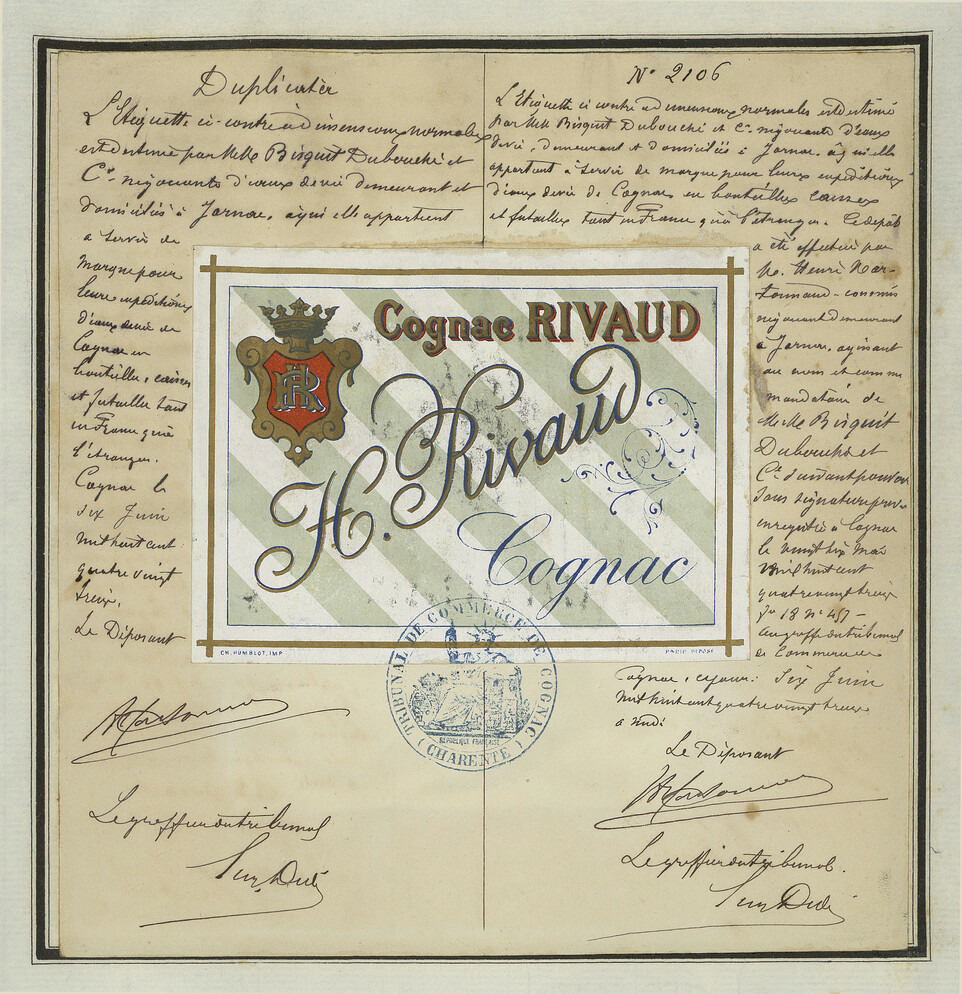 Duplicata
L'Etiquette ci-contre a dimensions normales
est destinée par MMes Bisquit Dubouché et
Cie. négociants d'eaux de vie demeurant et
domiciliés à Jarnac, à qui elle appartient
à servir de
marque pour
leurs expéditions
d'eaux de vie de
Cognac en
bouteilles, caisses
et futailles tant
en France qu'à
l'étranger.
Cognac le
six Juin
mil huit cent
quatre vingt
treize.
Le Déposant
Le greffier du tribunal
N° 2106
L'Etiquette ci contre a dimensions normales est destinée
par MMes Bisquit Dubouché et Cie. négociants d'eaux
de vie, demeurant et domiciliés à Jarnac, à qui elle
appartient à servir de marque pour leurs expéditions
d'eaux de vie de Cognac en bouteilles caisses
et futailles tant en France qu'à l'étranger. Ce dépôt
a été effectué par
M. Henri
commis
négociant demeurant
à Jarnac, agissant
au nom et comme
mandataire de
MMes Bisquit
Dubouché et
Cie. suivant pouvoir
sous signature privée
enregistré à Cognac
le vingt six Mai
mil huit cent
quatre vingt treize
fo 18 No 457
au greffe du tribunal
de Commerce de
Cognac, ce jour: Six Juin
mil huit cent quatre vingt treize
à midi
Le Déposant
Le greffier du tribunal.
Cognac RIVAUD
HR
H. Rivaud
Cognac
CH. HUMBLOT, IMP
PARIS DÉPOSÉ
TRIBUNAL DE COMMERCE DE COGNAC
RÉPUBLIQUE FRANÇAISE
(CHARENTE)